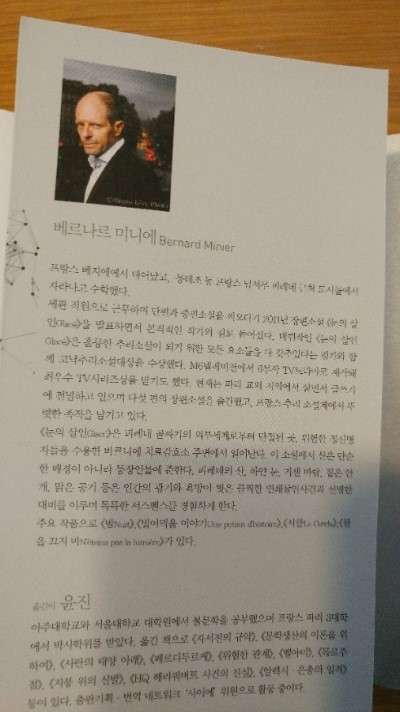 ©Bruno Lévy Photo
베르나르 미니에 Bernard Minier
프랑스 베지에에서 태어났고, 몽레조 등 프랑스 남서부 피레네 근처 도시들에서
자라나고 수학했다.
세관 직원으로 근무하며 단편과 중편소설을 써오다가 2011년 장편소설 《눈의 살
인Glacé》을 발표하면서 본격적인 작가의 길로 들어섰다. 데뷔작인 《눈의 살인
Glacé》은 훌륭한 추리소설이 되기 위한 모든 요소들을 다 갖추었다는 평가와 함
께 코냑추리소설대상을 수상했다. M6텔레비전에서 6부작 TV드라마로 제작돼
최우수 TV시리즈상을 받기도 했다. 현재는 파리 교외 지역에서 살면서 글쓰기
에 전념하고 있으며 다섯 편의 장편소설을 출간했고, 프랑스 추리 소설계에서 뚜
렷한 족적을 남기고 있다.
《눈의 살인Glacé》은 피레네 골짜기의 외부세계로부터 단절된 곳, 위험한 정신병
자들을 수용한 바르니에 치료감호소 주변에서 일어난다. 이 소설에서 산은 단순
한 배경이 아니라 등장인물에 준한다. 피레네의 산, 하얀 눈, 거센 바람, 짙은 안
개, 맑은 공기 등은 인간의 광기와 욕망이 빚은 끔찍한 연쇄살인사건과 선명한
대비를 이루며 독특한 서스펜스를 경험하게 한다.
주요 작품으로 《밤Nuit》, 《빌어먹을 이야기Une putain d'histoire》, 《서클Le Cercle》, 《불
을 끄지 마N'éteins pas la lumière》가 있다.
옮긴이 윤진
아주대학교와 서울대학교 대학원에서 불문학을 공부했으며 프랑스 파리 3대학
에서 박사학위를 받았다. 옮긴 책으로 《자서전의 규약》, 《문학생산의 이론을 위
하여》, 《사탄의 태양 아래》, 《페르디두르케》, 《위험한 관계》, 《벨아미》, 《목로주
점》, 《지붕 위의 신발》, 《HQ 해리쿼버트 사건의 진실》, 《알렉시·은총의 일격》
등이 있다. 출판기획·번역 네트워크 '사이에' 위원으로 활동 중이다.